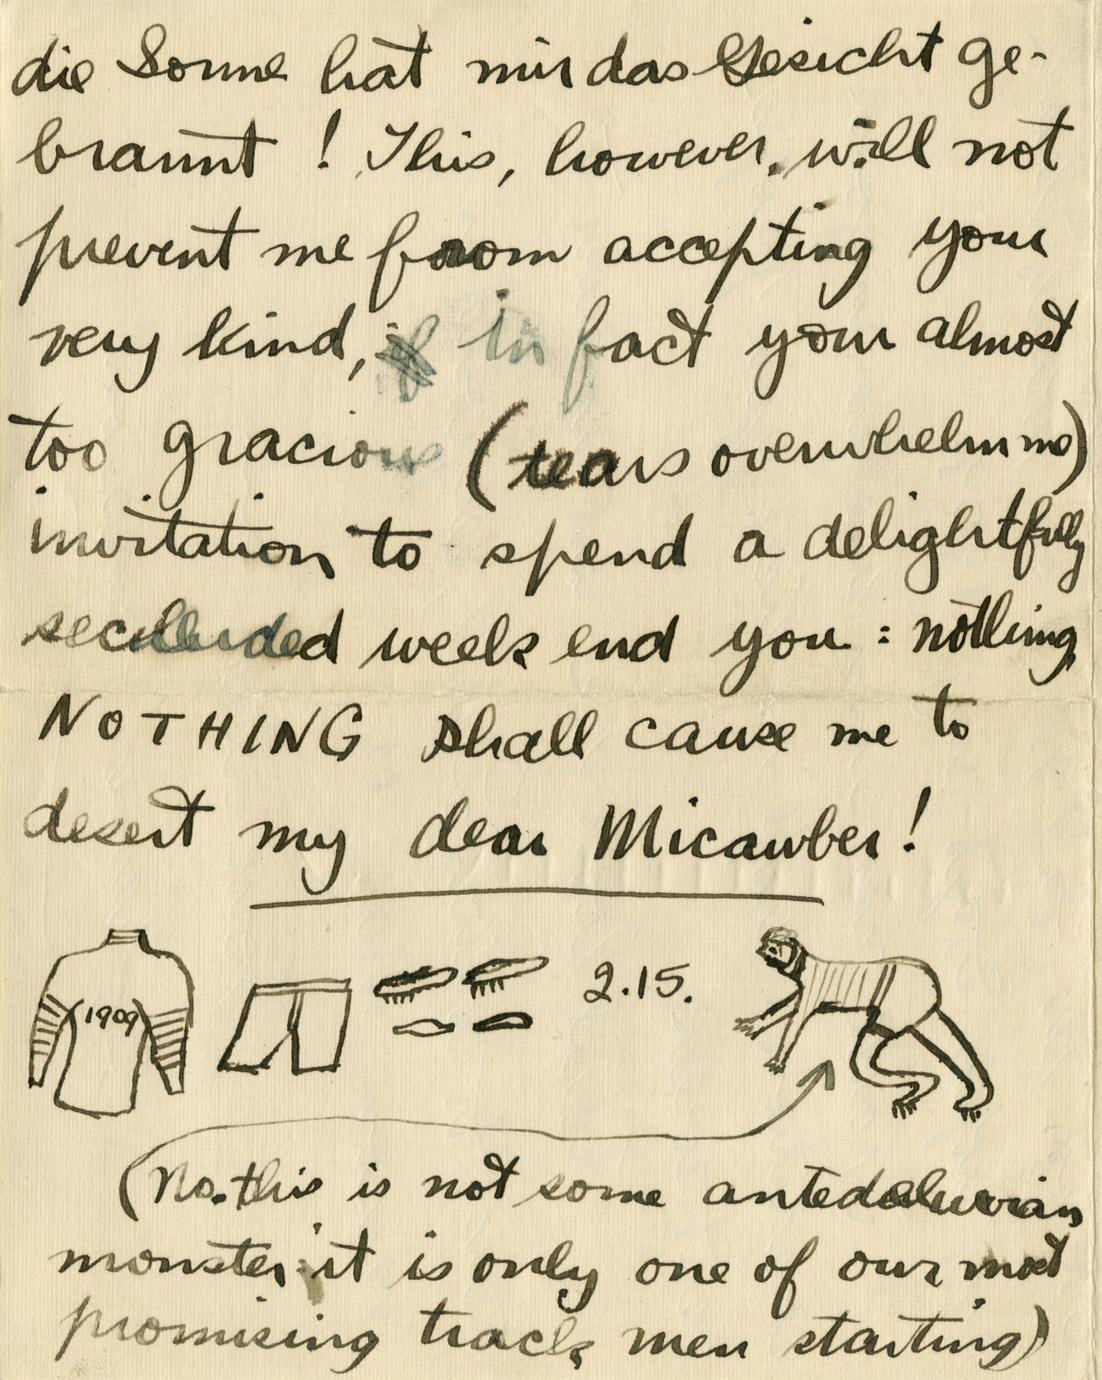 die Sonne hat mir das Gesicht ge-
brannt! This, however, will not
prevent me from accepting your
very kind, in fact your almost
too gracious (tears overwhelm me)
invitation to spend a delightfully
secluded week end you: nothing
NOTHING shall cause me to
desert my dear Micawber!
1909
2.15.
(No. this is not some antedeluvian
monster it is only one of our most
promising track men starting)